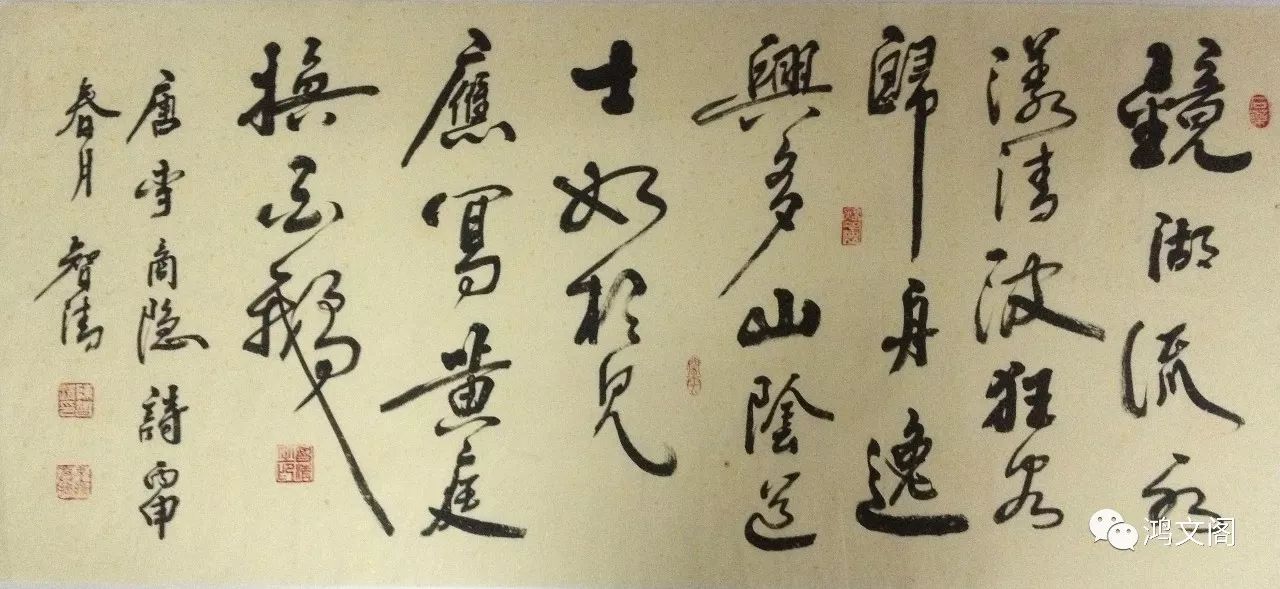 鏡湖流水
漾清波狂客
歸舟逸
興多山陰道
士如相見
應寫黃庭
換白鵝
唐李商隐詩丙申
春月 智清
鸿文阁